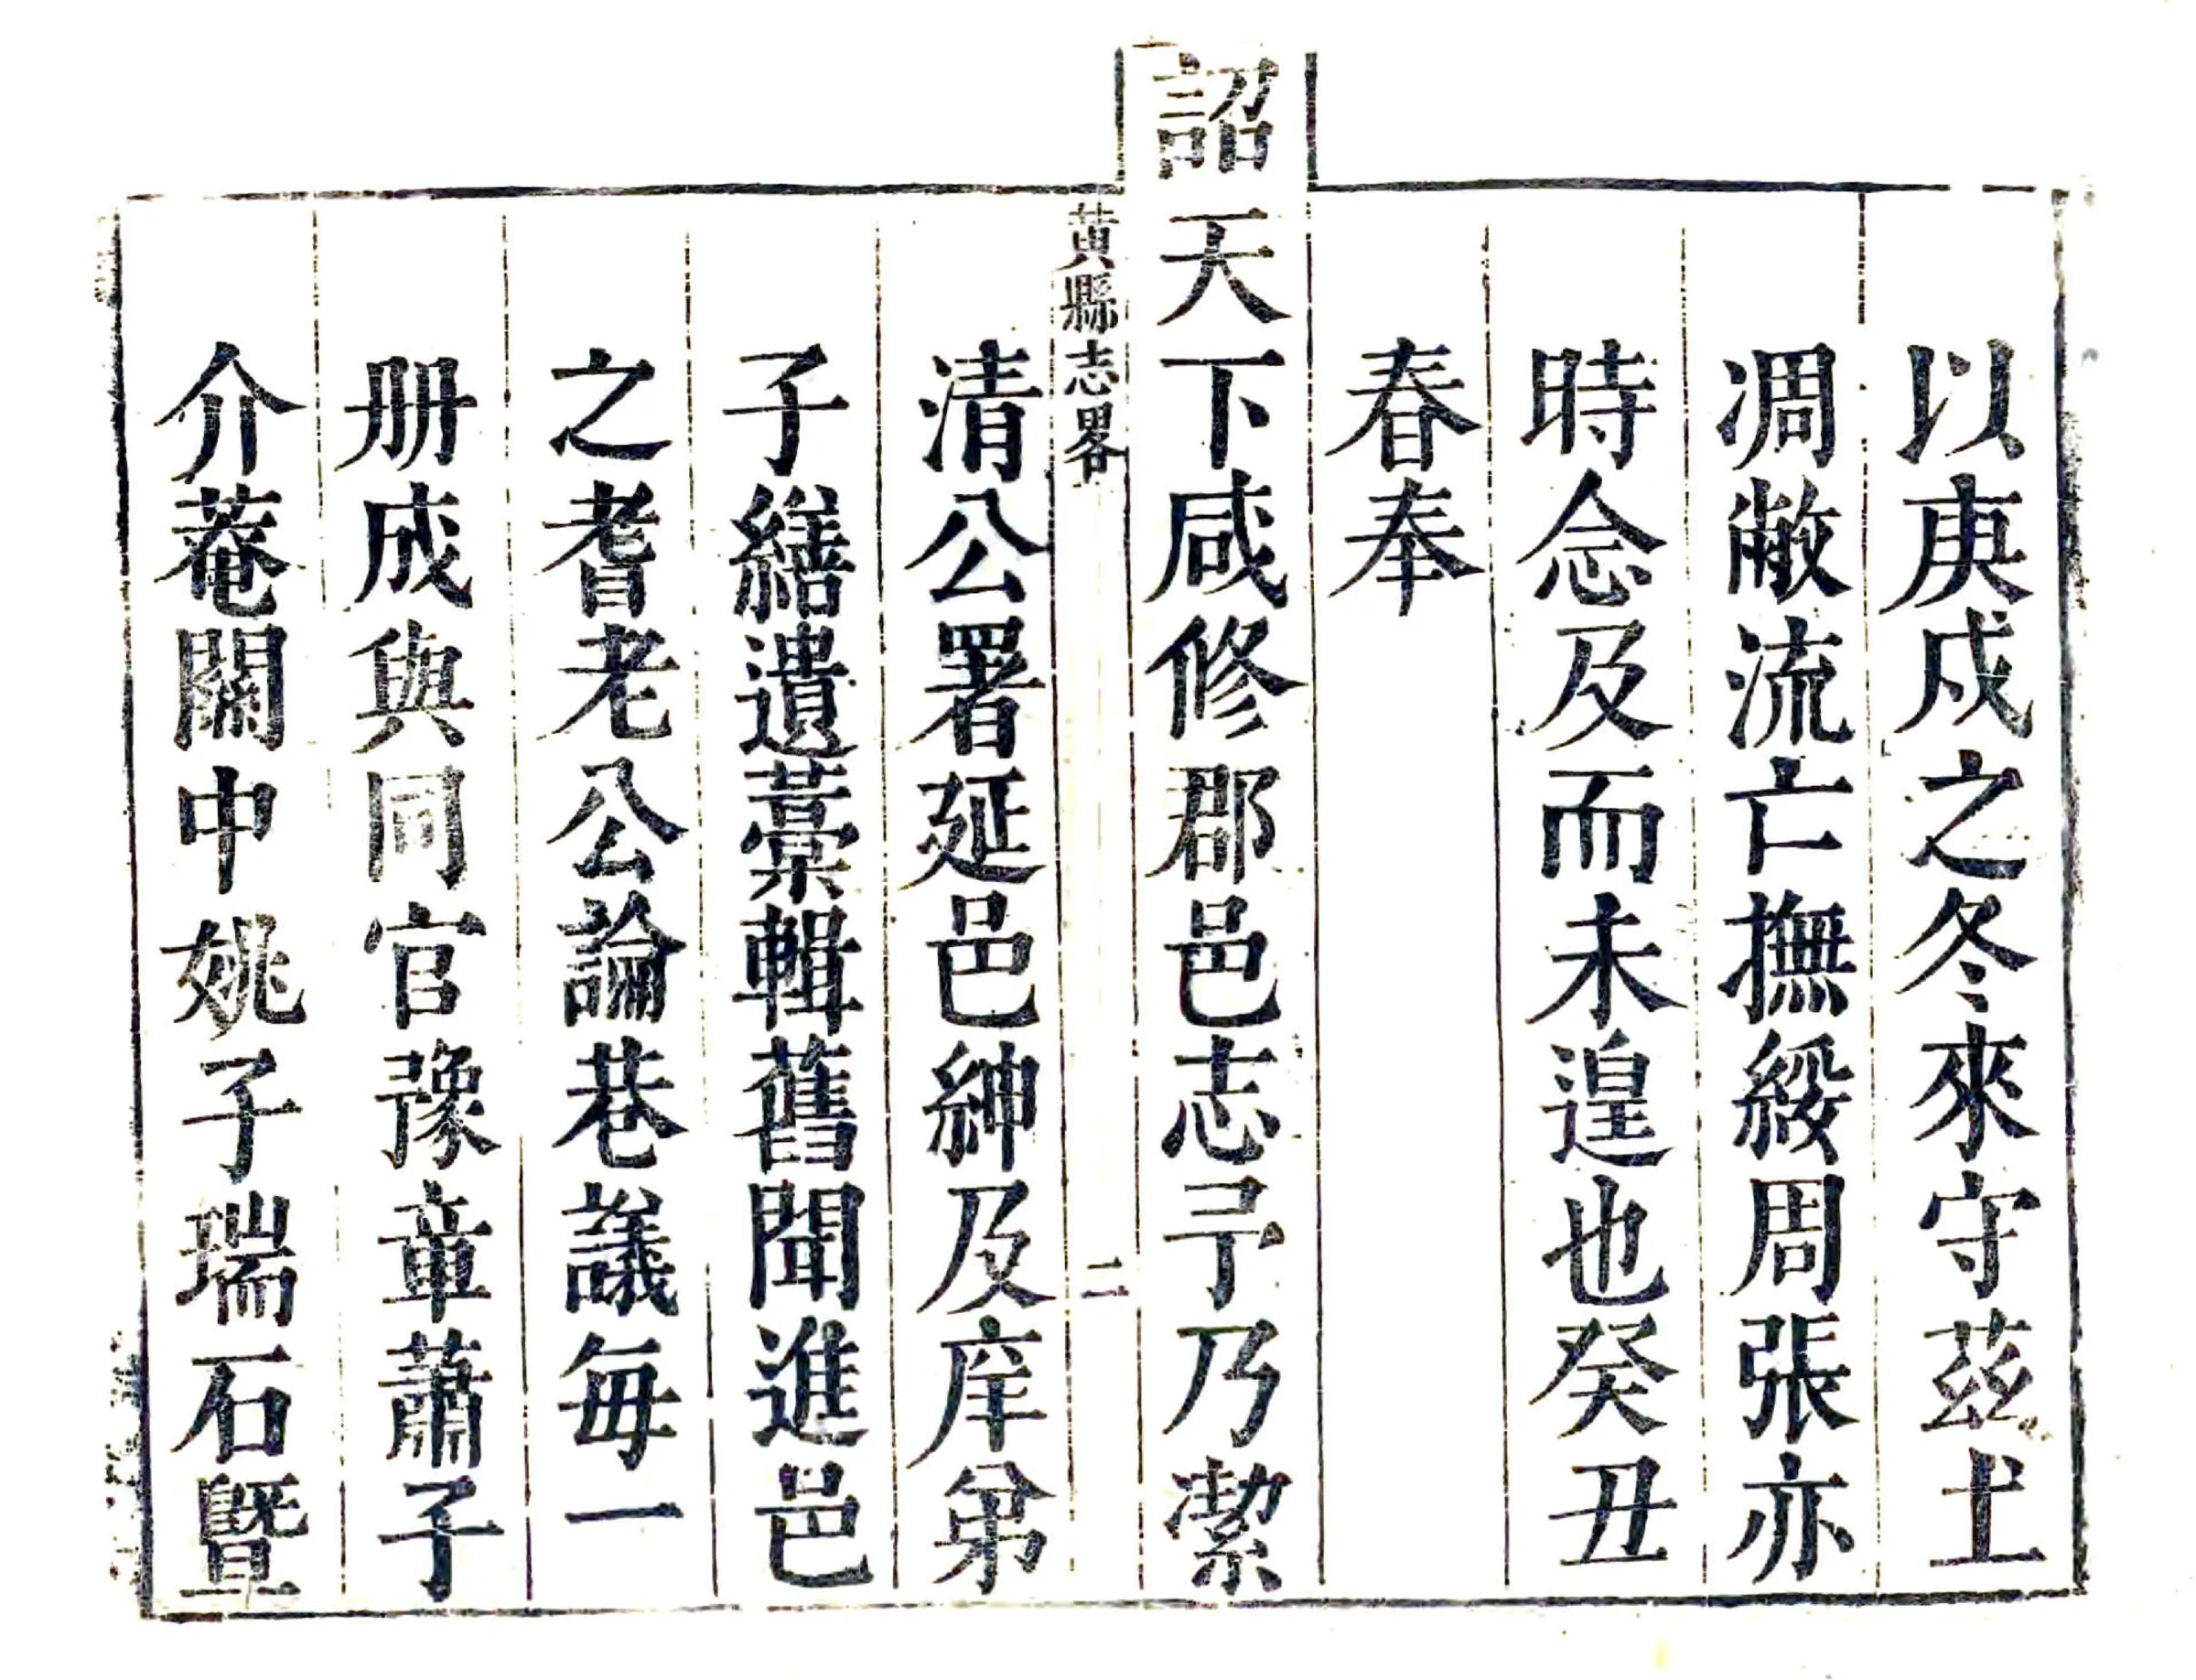 以庚戌之冬來守茲土
凋敝流亡撫綏周張亦
時念及而未遑也癸丑
春奉
詔天下咸修郡邑志予乃潔
黃縣志畧
二
清公署延邑紳及庠弟
子繕遺藁輯舊聞進邑
之耆老公論巷議每一
册成與同官豫章蕭子
介菴關中姚子瑞石暨